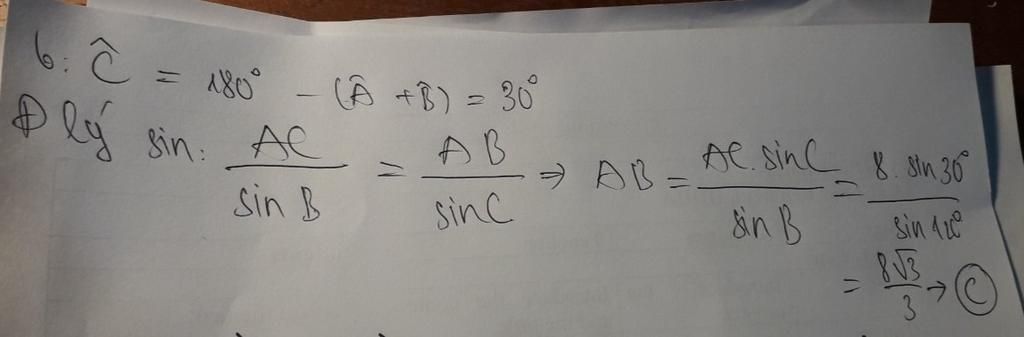 6: Ĉ = 180° - (Â + B̂) = 30°
Đ lý sin: AC / sin B = AB / sin C ⇒ AB = AC. sin C / sin B = 8. sin 30° / sin 120°
= 8√3 / 3 → Ⓒ